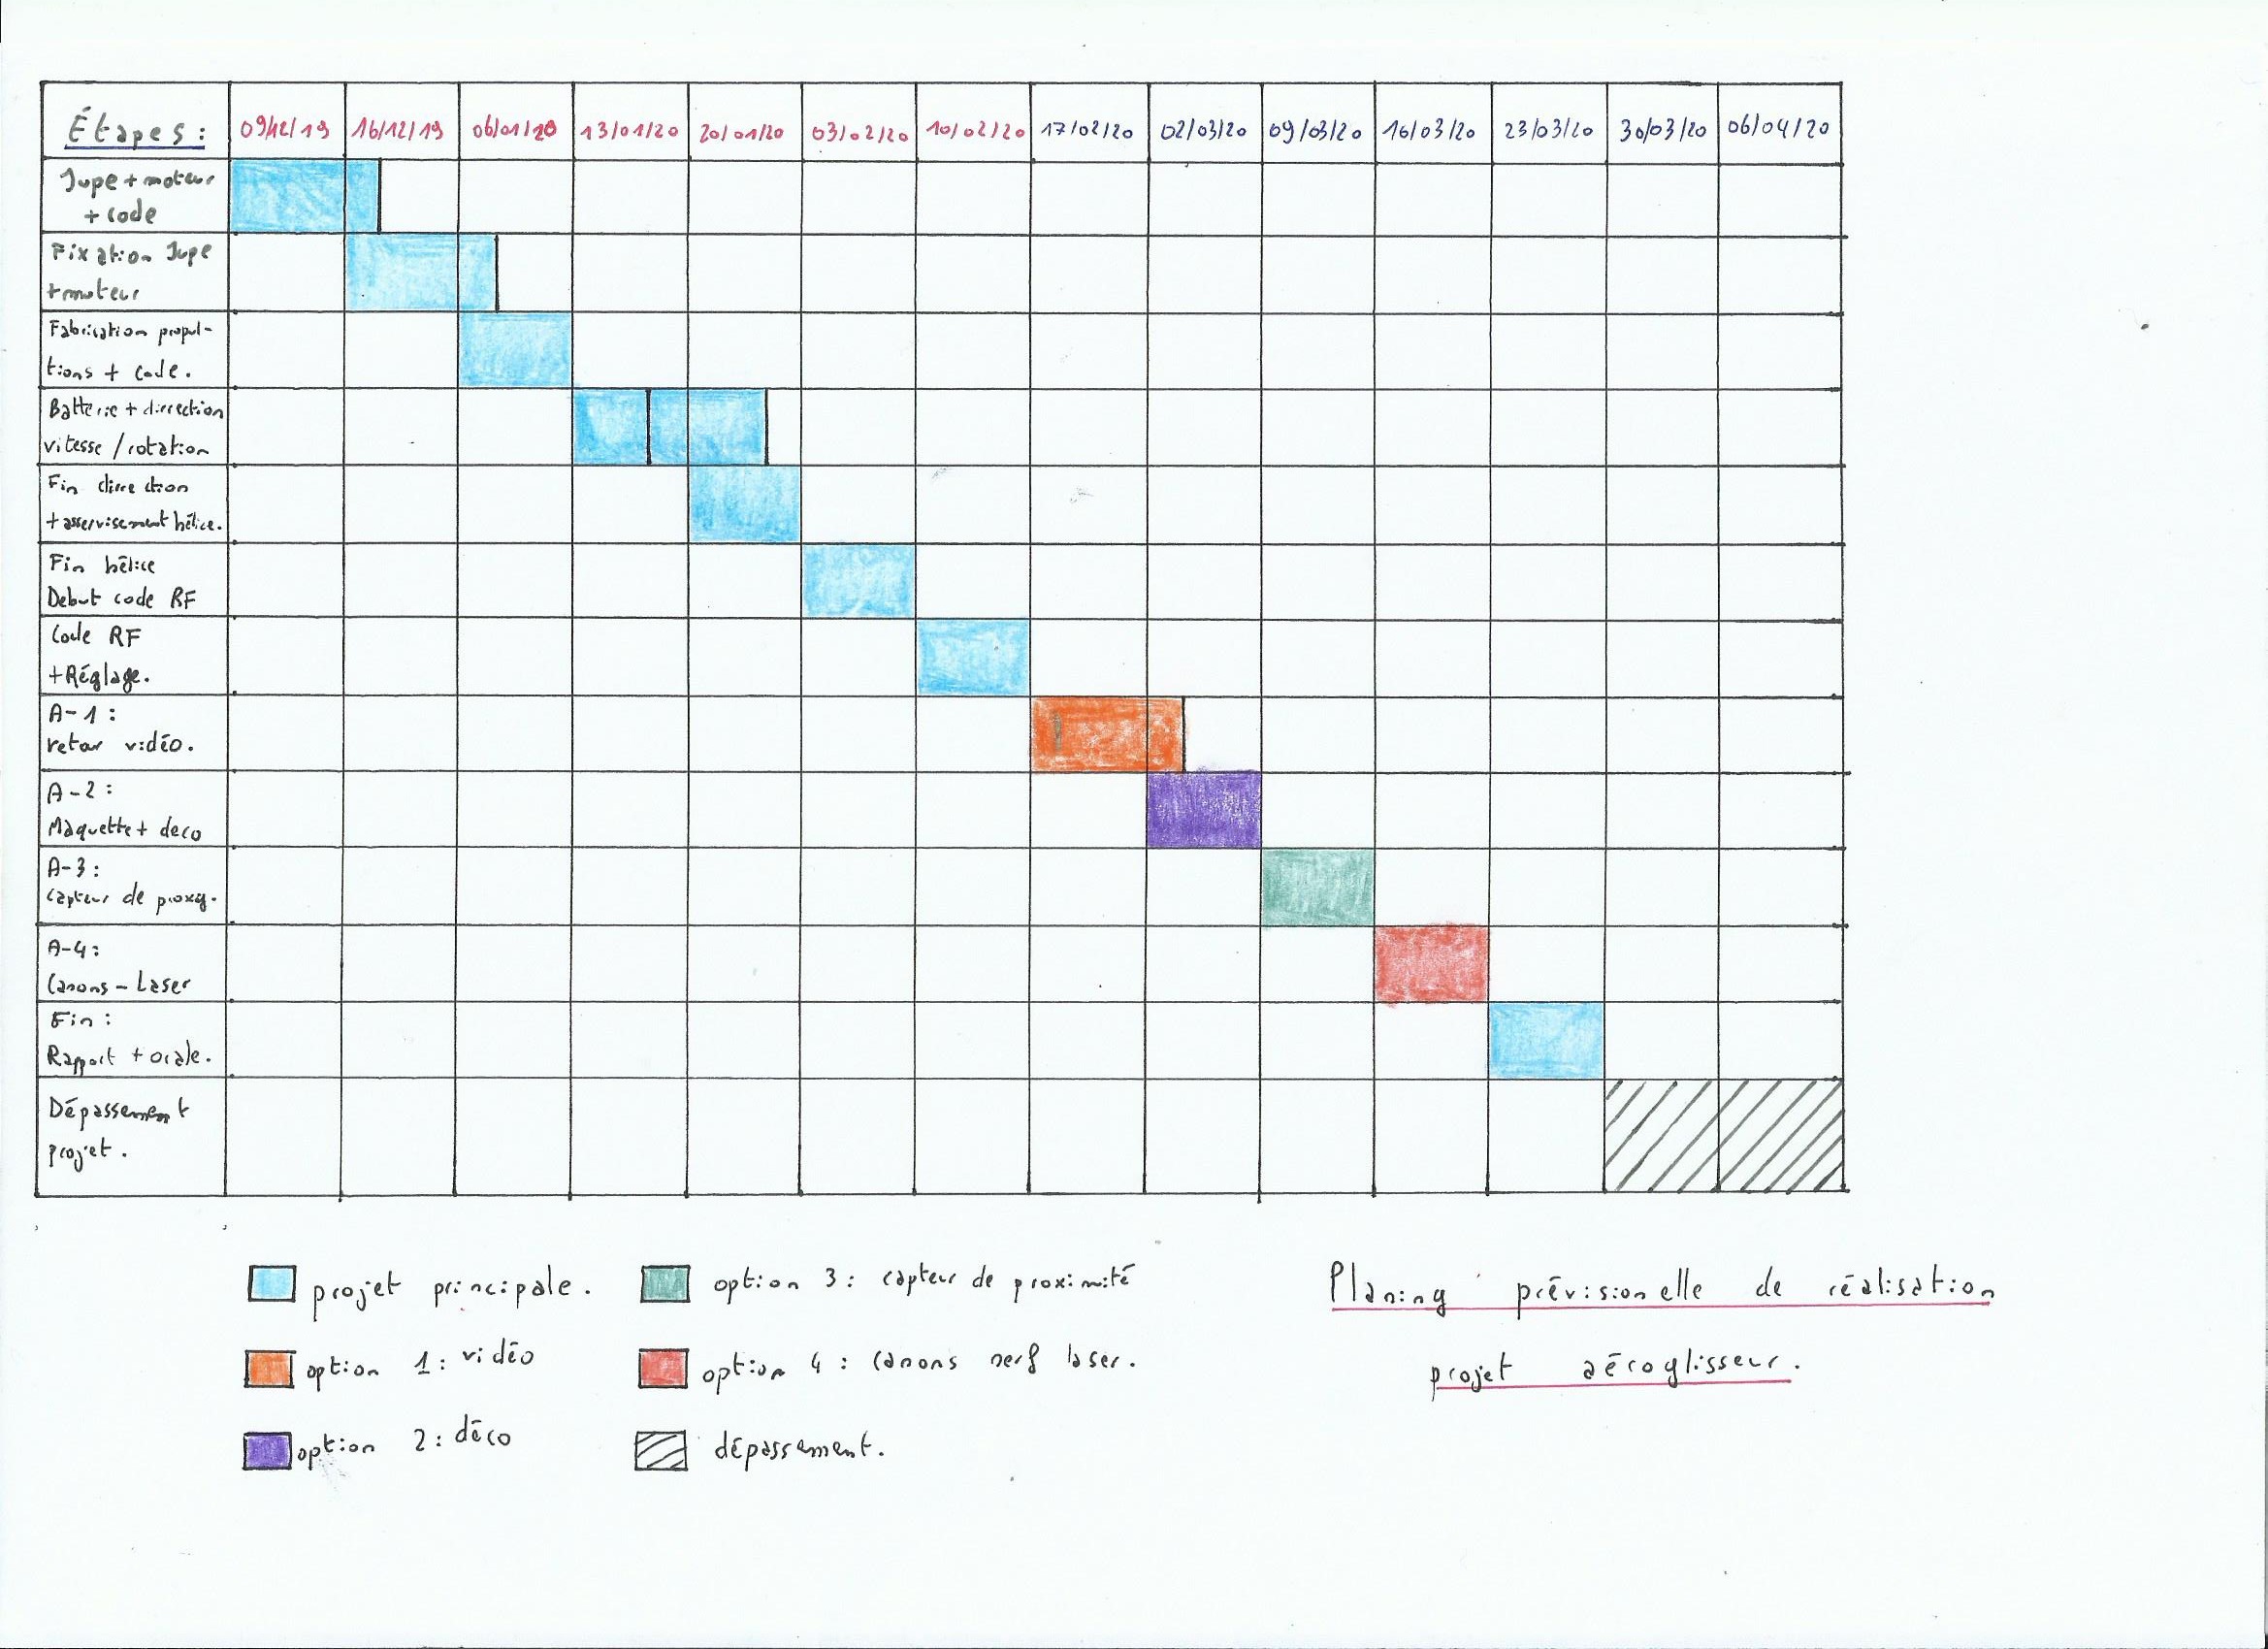 Étapes : 09/12/19 16/12/19 06/01/20 13/01/20 20/01/20 03/02/20 10/02/20 17/02/20 02/03/20 09/03/20 16/03/20 23/03/20 30/03/20 06/04/20
Jupe + moteur
+ code
Fixation Jupe
+ moteur
Fabrication propul-
tions + code.
Batterie + dirrection
vitesse / rotation
Fin dirrection
+ asservisement hélice.
Fin hélice
Debut code RF
Code RF
+ Réglage.
A-1 :
retour vidéo.
A-2 :
Maquette + deco
A-3 :
Capteur de proxy.
A-4 :
Canons - Laser
Fin :
Rapport + orale.
Dépassement
projet .
projet principale .
option 1 : vidéo
option 2 : déco
option 3 : capteur de proximité
option 4 : canons nerf laser.
dépassement.
Planing prévisionelle de réalisation
projet aéroglisseur .